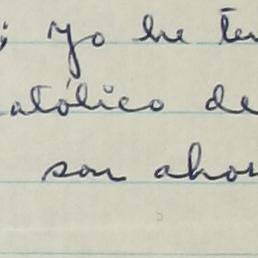 ; yo he ten
atólico de
son ahor